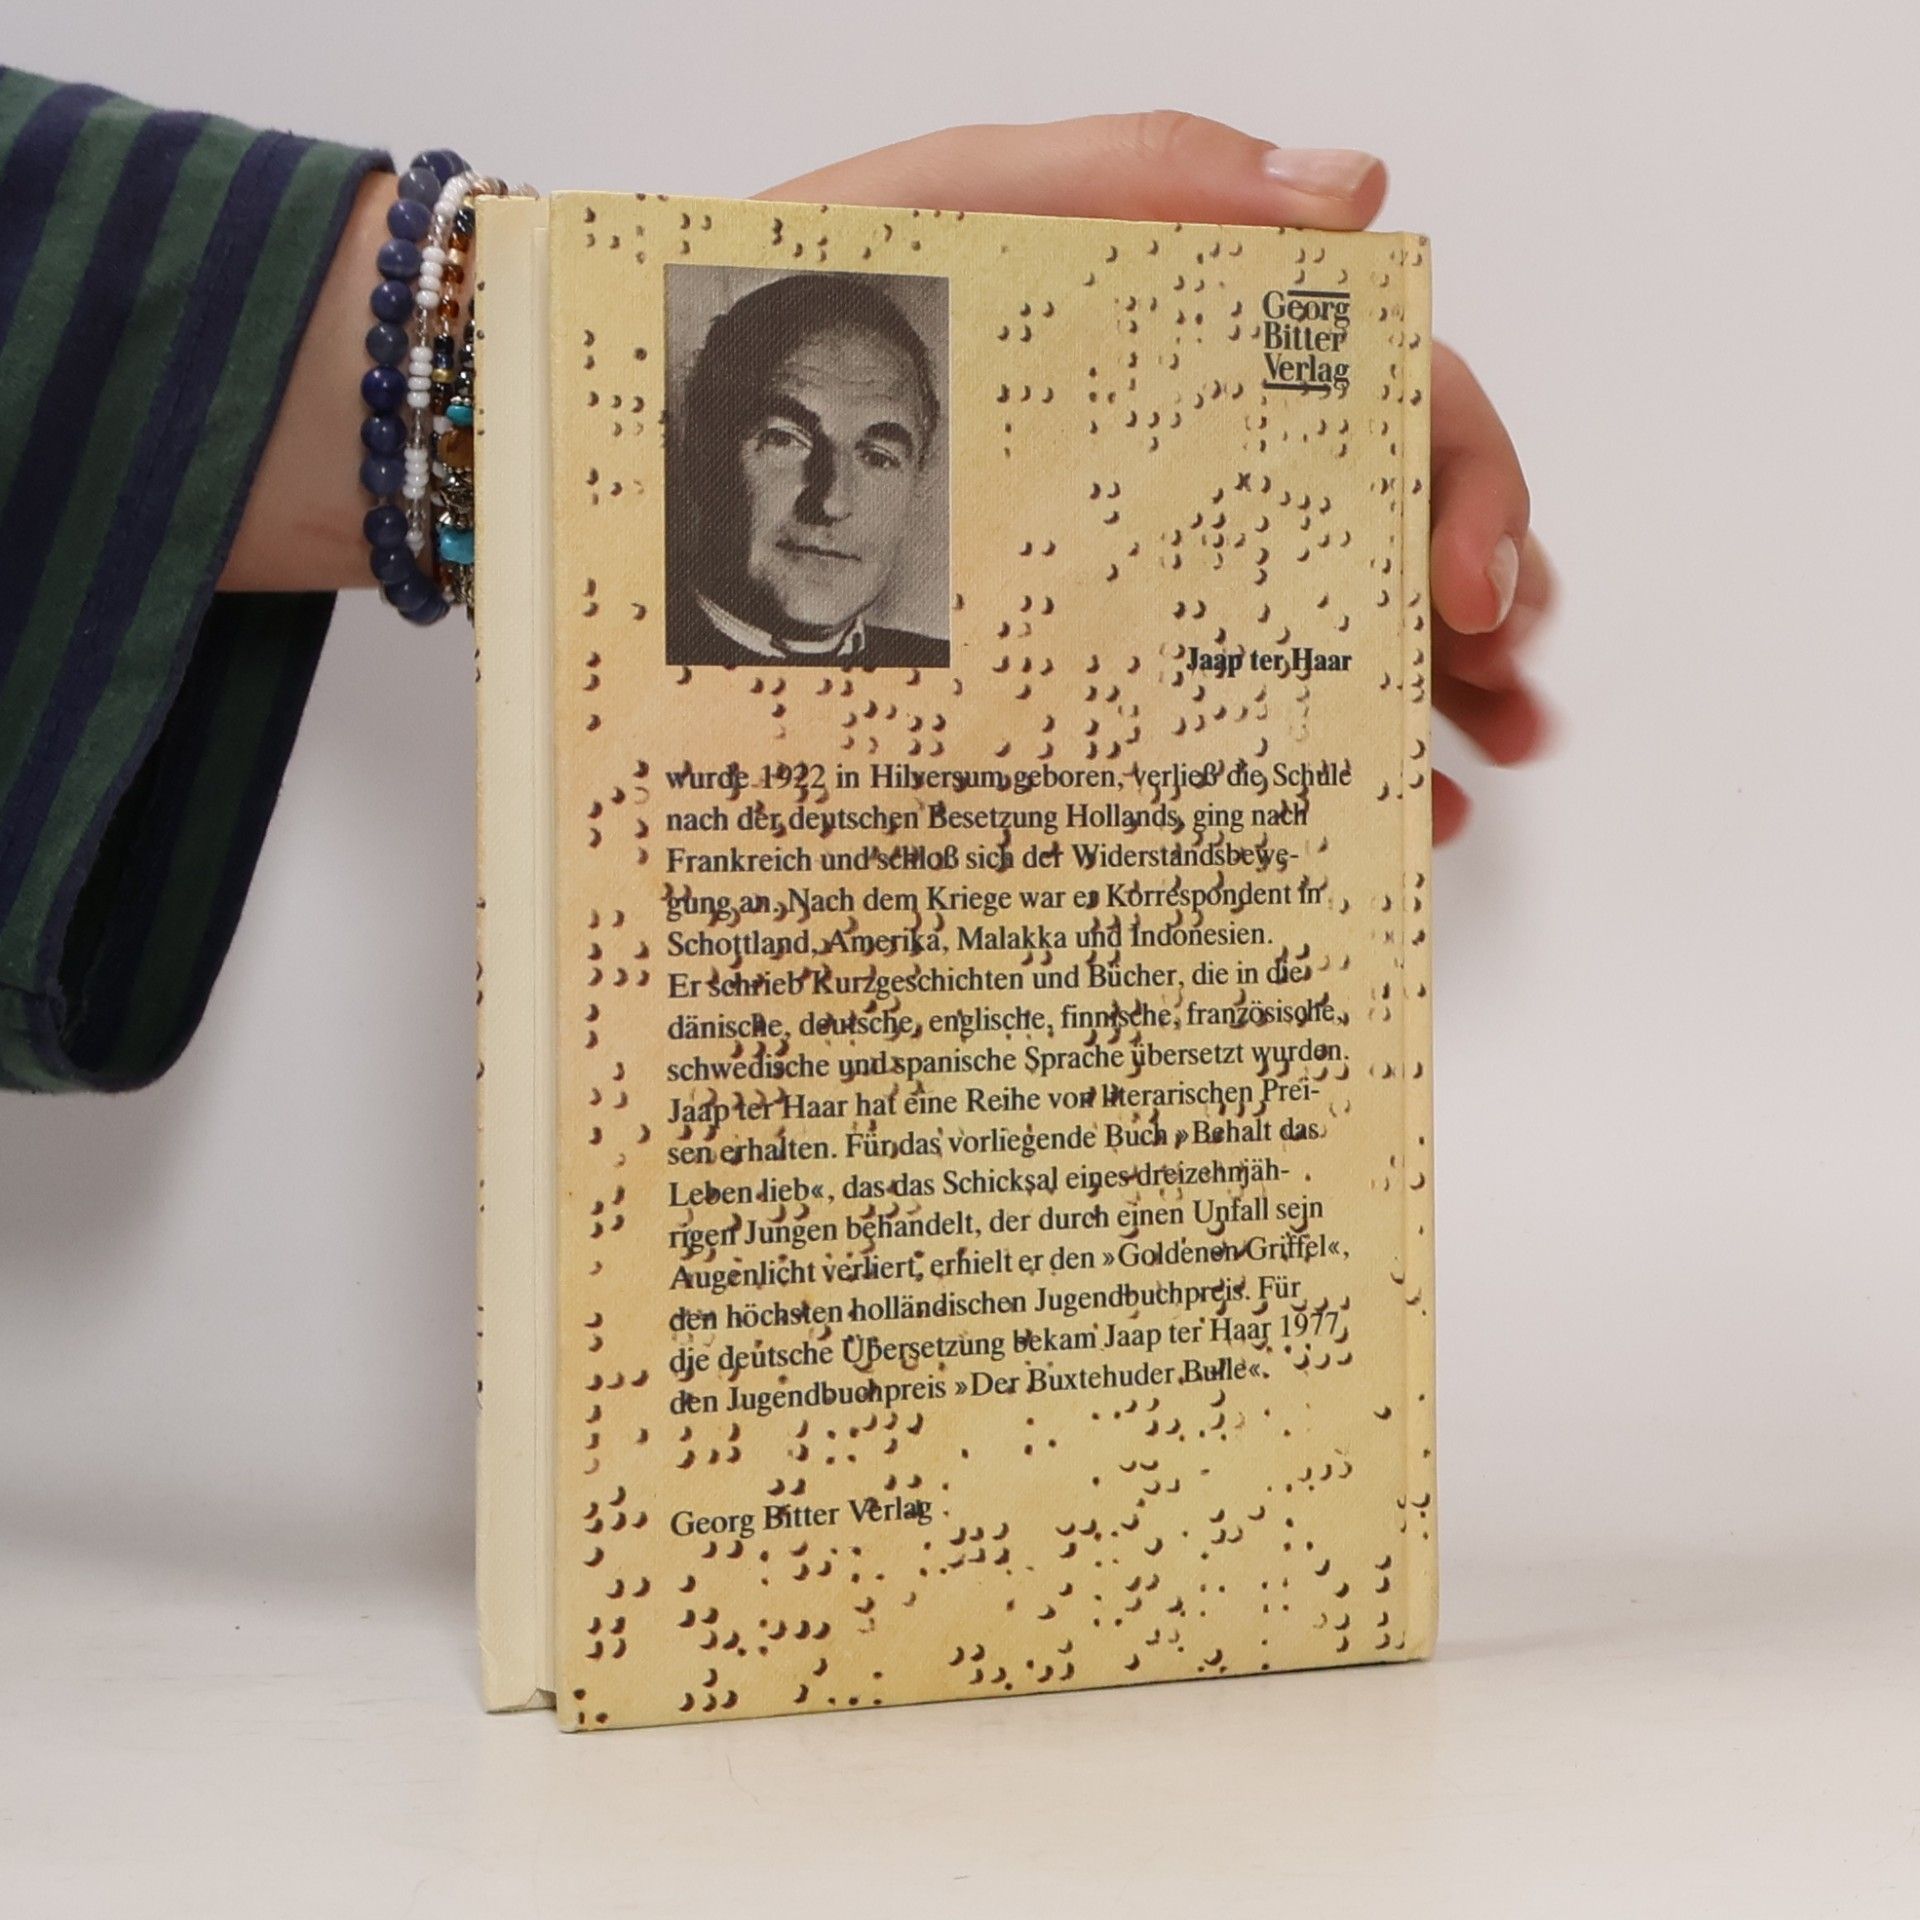 Georg
Bitter
Verlag
Jaap ter Haar
wurde 1922 in Hilversum geboren, verließ die Schule
nach der deutschen Besetzung Hollands, ging nach
Frankreich und schloß sich der Widerstandsbewe-
gung an. Nach dem Kriege war er Korrespondent in
Schottland, Amerika, Malakka und Indonesien.
Er schrieb Kurzgeschichten und Bücher, die in die
dänische, deutsche, englische, finnische, französische,
schwedische und spanische Sprache übersetzt wurden.
Jaap ter Haar hat eine Reihe von literarischen Prei-
sen erhalten. Für das vorliegende Buch »Behalt das
Leben lieb«, das das Schicksal eines dreizehnjäh-
rigen Jungen behandelt, der durch einen Unfall sein
Augenlicht verliert, erhielt er den »Goldenen Griffel«,
den höchsten holländischen Jugendbuchpreis. Für
die deutsche Übersetzung bekam Jaap ter Haar 1977
den Jugendbuchpreis »Der Buxtehuder Bulle«.
Georg Bitter Verlag